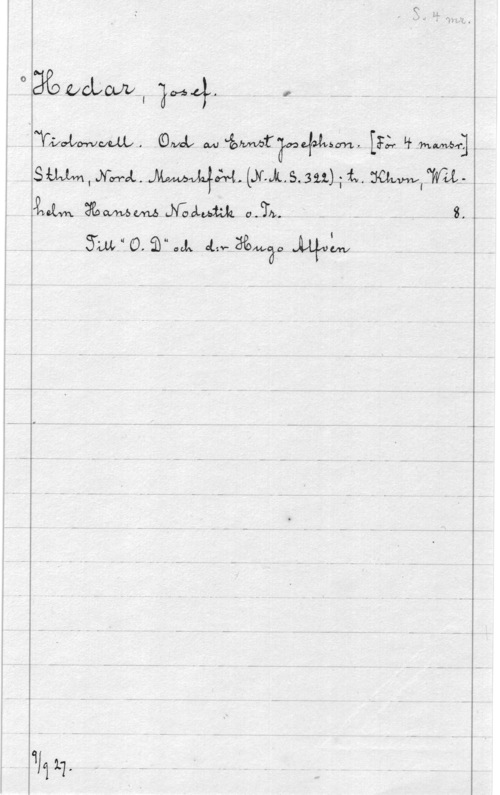 S. 4 mr.
Hedar, Josef.
Violoncell. Ord av Ernst Josephson. [För 4 mansr]
Sthlm, Nord. Musikförl. (N.M.S. 322); t. Khvn, Wil-
helm Hansens Nodestik o. Tr. 8.
Till "O. D" och d:r Hugo Alfvén
9/9 27.